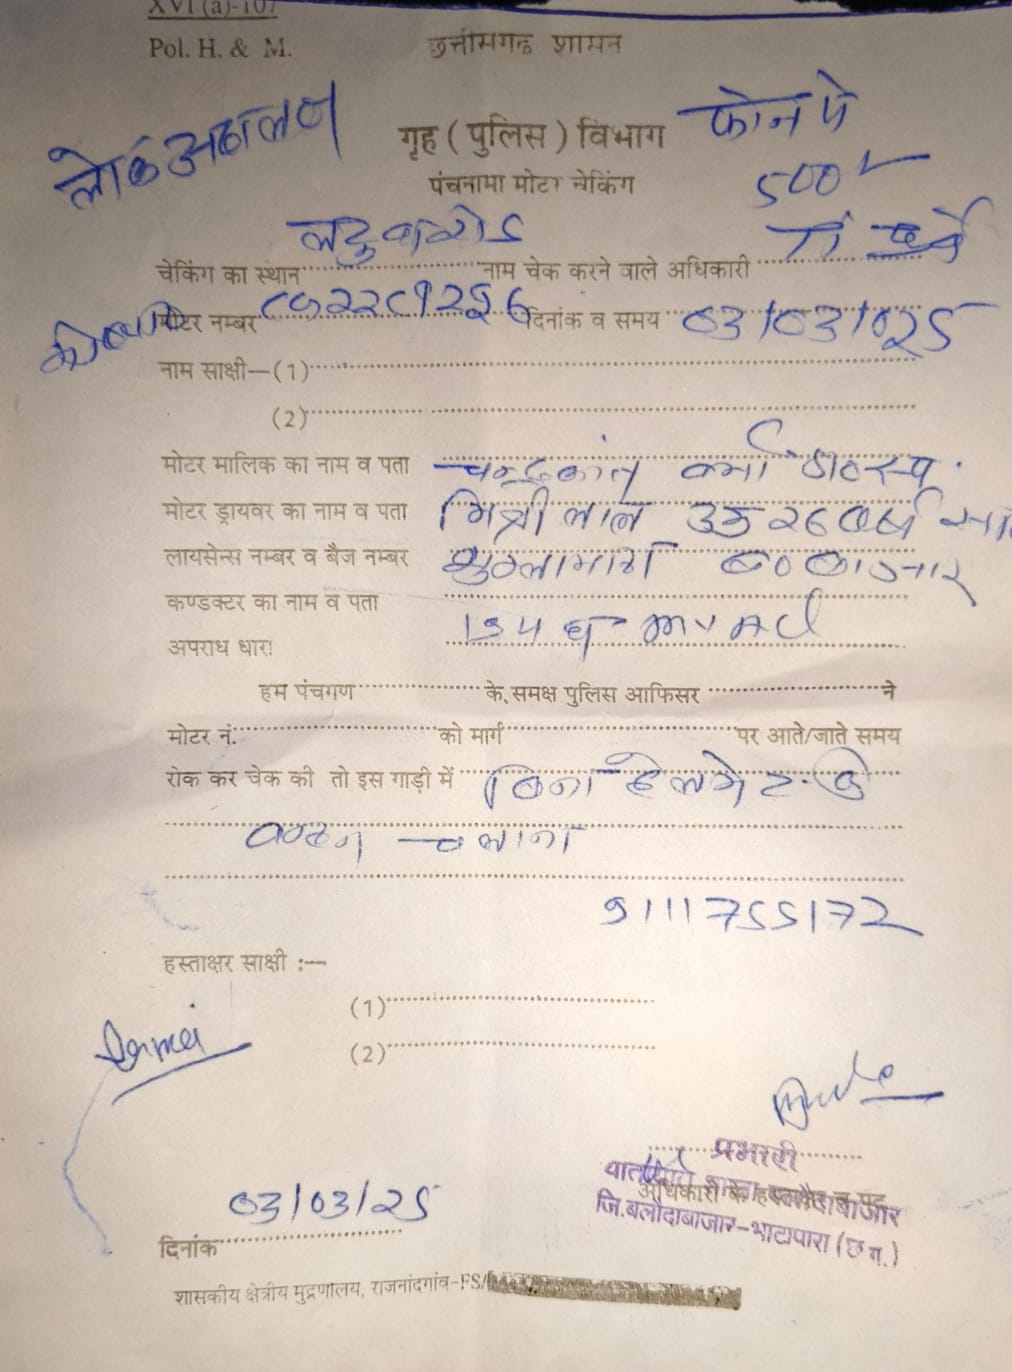 XVI (a)-107
Pol. H. & M.
छत्तीसगढ शासन
लोक अदालत
गृह ( पुलिस ) विभाग
फोन पे
पंचनामा मोटर चेकिंग
500/-
चेकिंग का स्थान लटुवा रोड नाम चेक करने वाले अधिकारी
मोटर नम्बर दिनांक व समय 03/03/025
नाम साक्षी—(1)
(2)
मोटर मालिक का नाम व पता चन्द्रकांत वर्मा
मोटर ड्रायवर का नाम व पता मिश्री लाल उम्र 26 वर्ष
लायसेन्स नम्बर व बैज नम्बर
कण्डक्टर का नाम व पता
अपराध धारा 194 घ mv Act
हम पंचगण के, समक्ष पुलिस आफिसर ने
मोटर नं. को मार्ग पर आते/जाते समय
रोक कर चेक की तो इस गाड़ी में बिना हेलमेट के
वाहन चलाना
9111755172
हस्ताक्षर साक्षी :—
(1)
(2)
प्रभारी
अधिकारी के हस्ताक्षर व पद
जि.बलौदाबाजार-भाटापारा (छ.ग.)
03/03/25
दिनांक
शासकीय क्षेत्रीय मुद्रणालय, राजनांदगांव-FS/